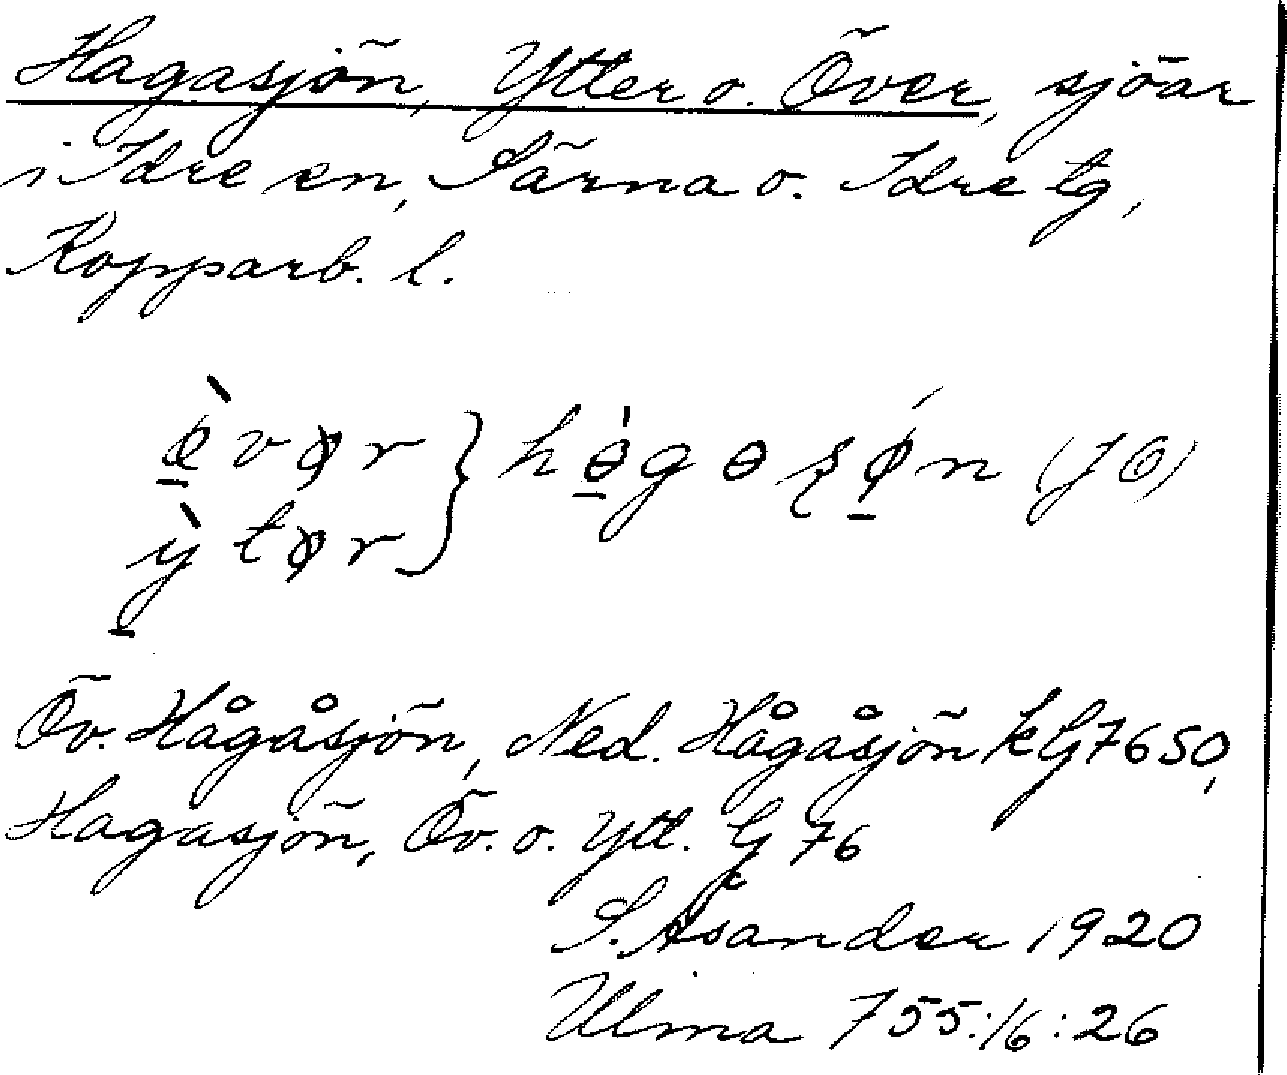 Hagasjön, Ytter o. Över, sjöar
i Idre sn, Särna o. Idre tg,
Kopparb. l.
ø̱̀vər } hɵ̱̀gɵʂǿ̱n (JÖ)
ỳ̱tər
Öv. Hågåsjön, Ned. Hågåsjön k G 7650,
Hagasjön, Öv. o. Ytt. G 76
S. Åsander 1920
Ulma 755:16:26